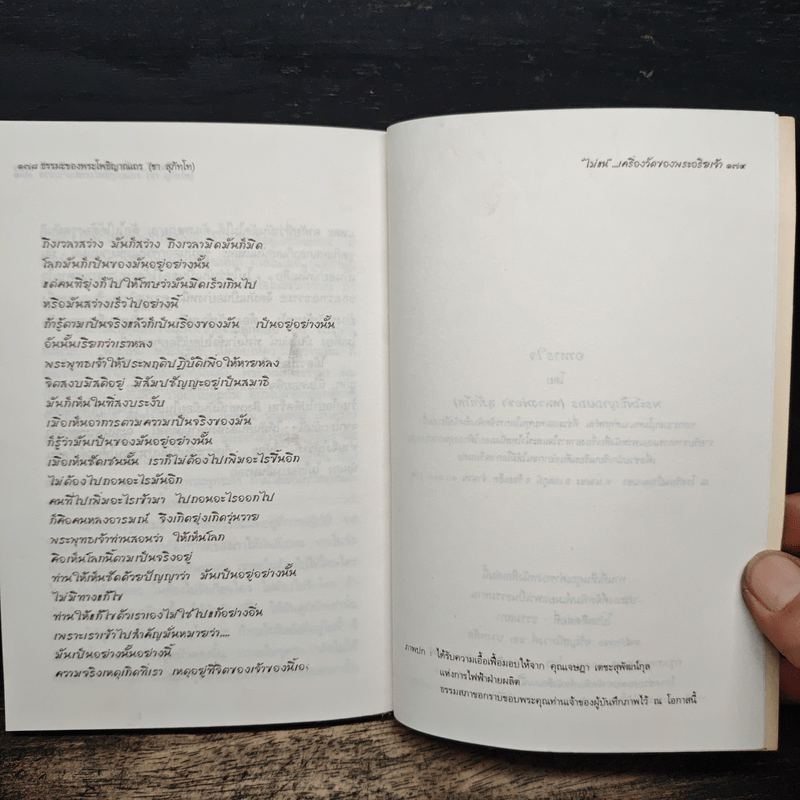 ๑๗๘ ธรรมะของพระโพธิญาณเถร (ชา สุภัทโท)
ถึงเวลาสว่าง มันก็สว่าง ถึงเวลามืดมันก็มืด
โลกมันก็เป็นของมันอยู่อย่างนั้น
แต่คนที่ยุ่งก็ไปให้โทษว่ามันมืดเร็วเกินไป
หรือมันสว่างเร็วไปอย่างนี้
ถ้ารู้ตามเป็นจริงแล้วก็เป็นเรื่องของมัน เป็นอยู่อย่างนั้น
อันนั้นเรียกว่าเราหลง
พระพุทธเจ้าให้ประพฤติปฏิบัติเพื่อให้หายหลง
จิตสงบมีสติอยู่ มีสัมปชัญญะอยู่เป็นสมาธิ
มันก็เห็นในที่สงบระงับ
เมื่อเห็นอาการตามความเป็นจริงของมัน
ก็รู้ว่ามันเป็นของมันอยู่อย่างนั้น
เมื่อเห็นชัดเช่นนั้น เราก็ไม่ต้องไปเพิ่มอะไรขึ้นอีก
ไม่ต้องไปถอนอะไรมันอีก
คนที่ไปเพิ่มอะไรเข้ามา ไปถอนอะไรออกไป
ก็คือคนหลงอารมณ์ จึงเกิดยุ่งเกิดวุ่นวาย
พระพุทธเจ้าท่านสอนว่า ให้เห็นโลก
คือเห็นโลกนี้ตามเป็นจริงอยู่
ท่านให้เห็นชัดด้วยปัญญาว่า มันเป็นอยู่อย่างนั้น
ไม่มีทางแก้ไข
ท่านให้แก้ไขตัวเราเองไม่ใช่ไปแก้อย่างอื่น
เพราะเราเข้าไปสำคัญมั่นหมายว่า....
มันเป็นอย่างนั้นอย่างนี้
ความจริงเหตุเกิดที่เรา เหตุอยู่ที่จิตของเจ้าของนี้เอง
"ไม่แน่"...เครื่องวัดของพระอริยเจ้า ๑๗๙
ภาพปก : ได้รับความเอื้อเฟื้อมอบให้จาก คุณเจษฎา เตชะสุพัฒน์กุล
แห่งการไฟฟ้าฝ่ายผลิต
ธรรมสภาขอกราบขอบพระคุณท่านเจ้าของผู้บันทึกภาพไว้ ณ โอกาสนี้